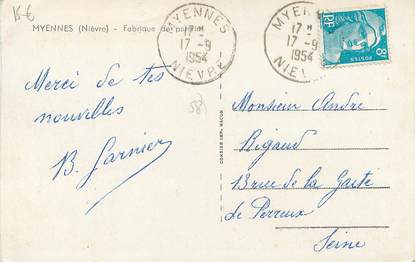 15-6
MYENNES (Nièvre) - Fabrique de
MYENNES
17-9
1954
NIEVRE
MYENNES
17-9
1954
NIEVRE
RF
POSTES
8F
58
Merci de tes
nouvelles
B. Garnier
Monsieur André
Rigaud
13 rue de la Gaité
Le Perreux
Seine